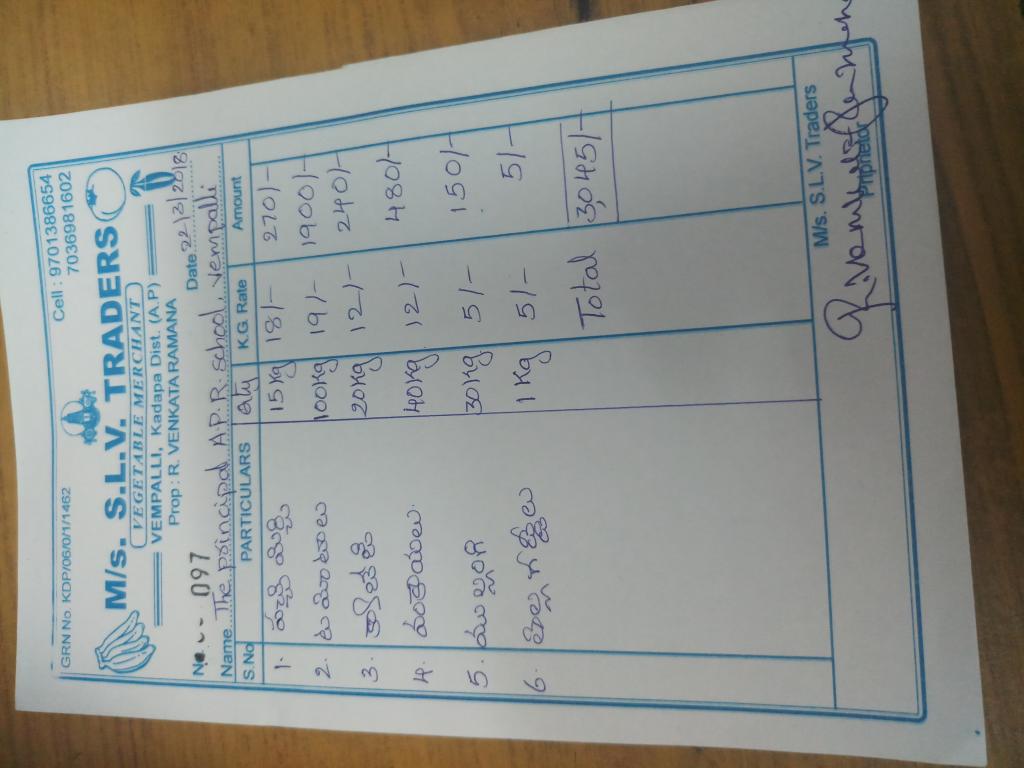 GRN No. KDP/06/0/1/1462 Cell : 9701386654
7036981602
M/s. S.L.V. TRADERS
VEGETABLE MERCHANT
VEMPALLI, Kadapa Dist. (A.P)
Prop : R. VENKATA RAMANA
No. 097 Date 22/2/2018
Name The principal A.P.R. School, Vempalli
S.No PARTICULARS Qty K.G. Rate Amount
1. పచ్చి మిర్చి 15 Kg 18/- 270/-
2. టమోటాలు 100Kg 19/- 1900/-
3. 20Kg 12/- 240/-
4. వంకాయలు 40Kg 12/- 480/-
5. ముల్లంగి 30Kg 5/- 150/-
6. 1 Kg 5/- 5/-
Total 3,045/-
M/s. S.L.V. Traders
Proprietor